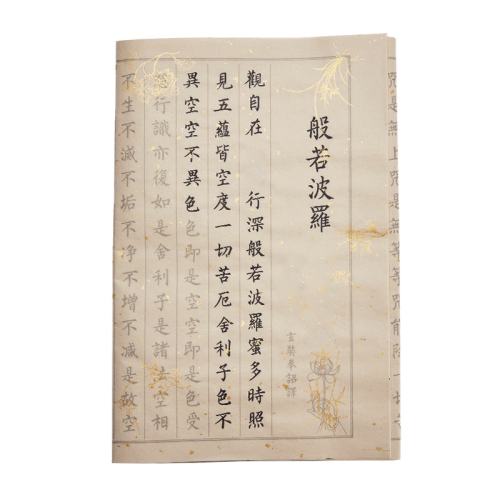 咒是無上咒是無等等咒能除一切
般若波羅
玄奘奉詔譯
觀自在 行深般若波羅蜜多時照
見五蘊皆空度一切苦厄舍利子色不
異空空不異色色即是空空即是色受
想行識亦復如是舍利子是諸法空相
不生不滅不垢不净不增不減是故空